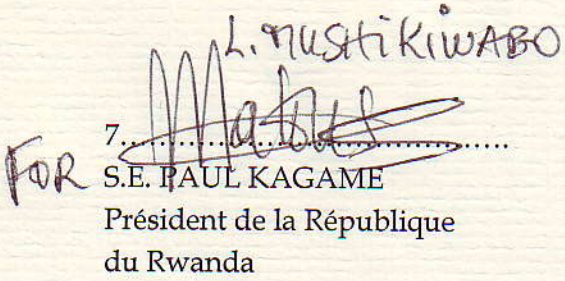 L. MUSHIKIWABO
7..........................................
FOR S.E. PAUL KAGAME
Président de la République
du Rwanda